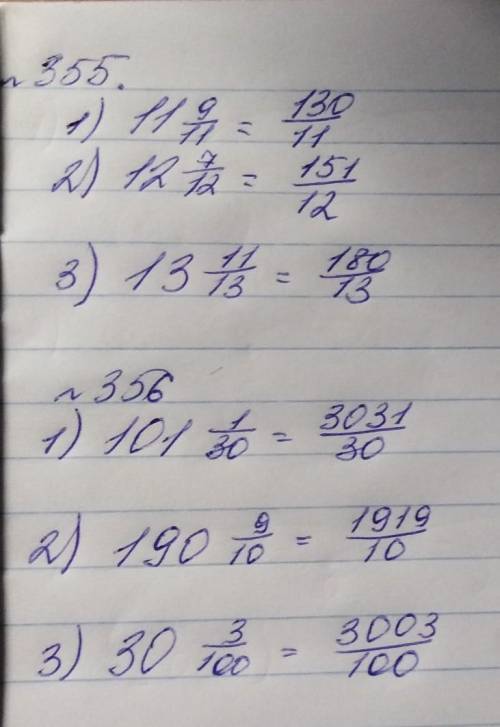 №355.
1) 11 9/11 = 130/11
2) 12 7/12 = 151/12
3) 13 11/13 = 180/13
№356
1) 101 1/30 = 3031/30
2) 190 9/10 = 1919/10
3) 30 3/100 = 3003/100